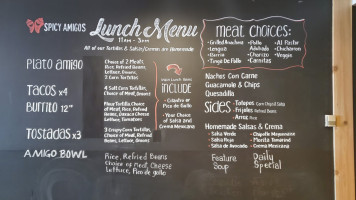 SPICY AMIGOS
Lunch Menu
11am - 3pm
All of our Tortillas & Salsas/Cremas are Homemade
PLATO AMIGO
Choice of 2 Meats
Rice, Refried Beans
Lettuce, Onions,
3 Corn Tortillas
TACOS x4
4 Soft Corn Tortillas
Choice of Meat,
Cilantro & Onions
BURRITO 12"
Flour Tortilla, Choice
of Meat, Rice, Refried
Beans, Oaxaca Cheese
Lettuce, Tomatoes
TOSTADAS x3
3 Crispy Corn Tortillas,
Choice of Meat, Refried
Beans, Lettuce, Onions
AMIGO BOWL
Rice, Refried Beans
Choice of Meat, Cheese
Lettuce, Pico de gallo
INCLUDE
Cilantro or
Pico de Gallo
Your Choice
of Salsa and
Crema Mexicana
MEAT CHOICES:
Grilled
Lengua
Barria
Tinga De Pollo
Pollo
Adovado
Chorizo
Carnitas
Al Pastor
Chicharron
Veggie
Nachos Con Carne
Guacamole & Chips
Quesadilla
Sides
Totopos
Frijoles Refried Beans
Arroz Rice
Homemade Salsas & Cremas
Salsa Verde
Salsa Roja
Salsa de Avocado
Chipotle Mayonnaise
Morita Tamarind
Crema Mexicana
Feature
Soup
Daily
Special